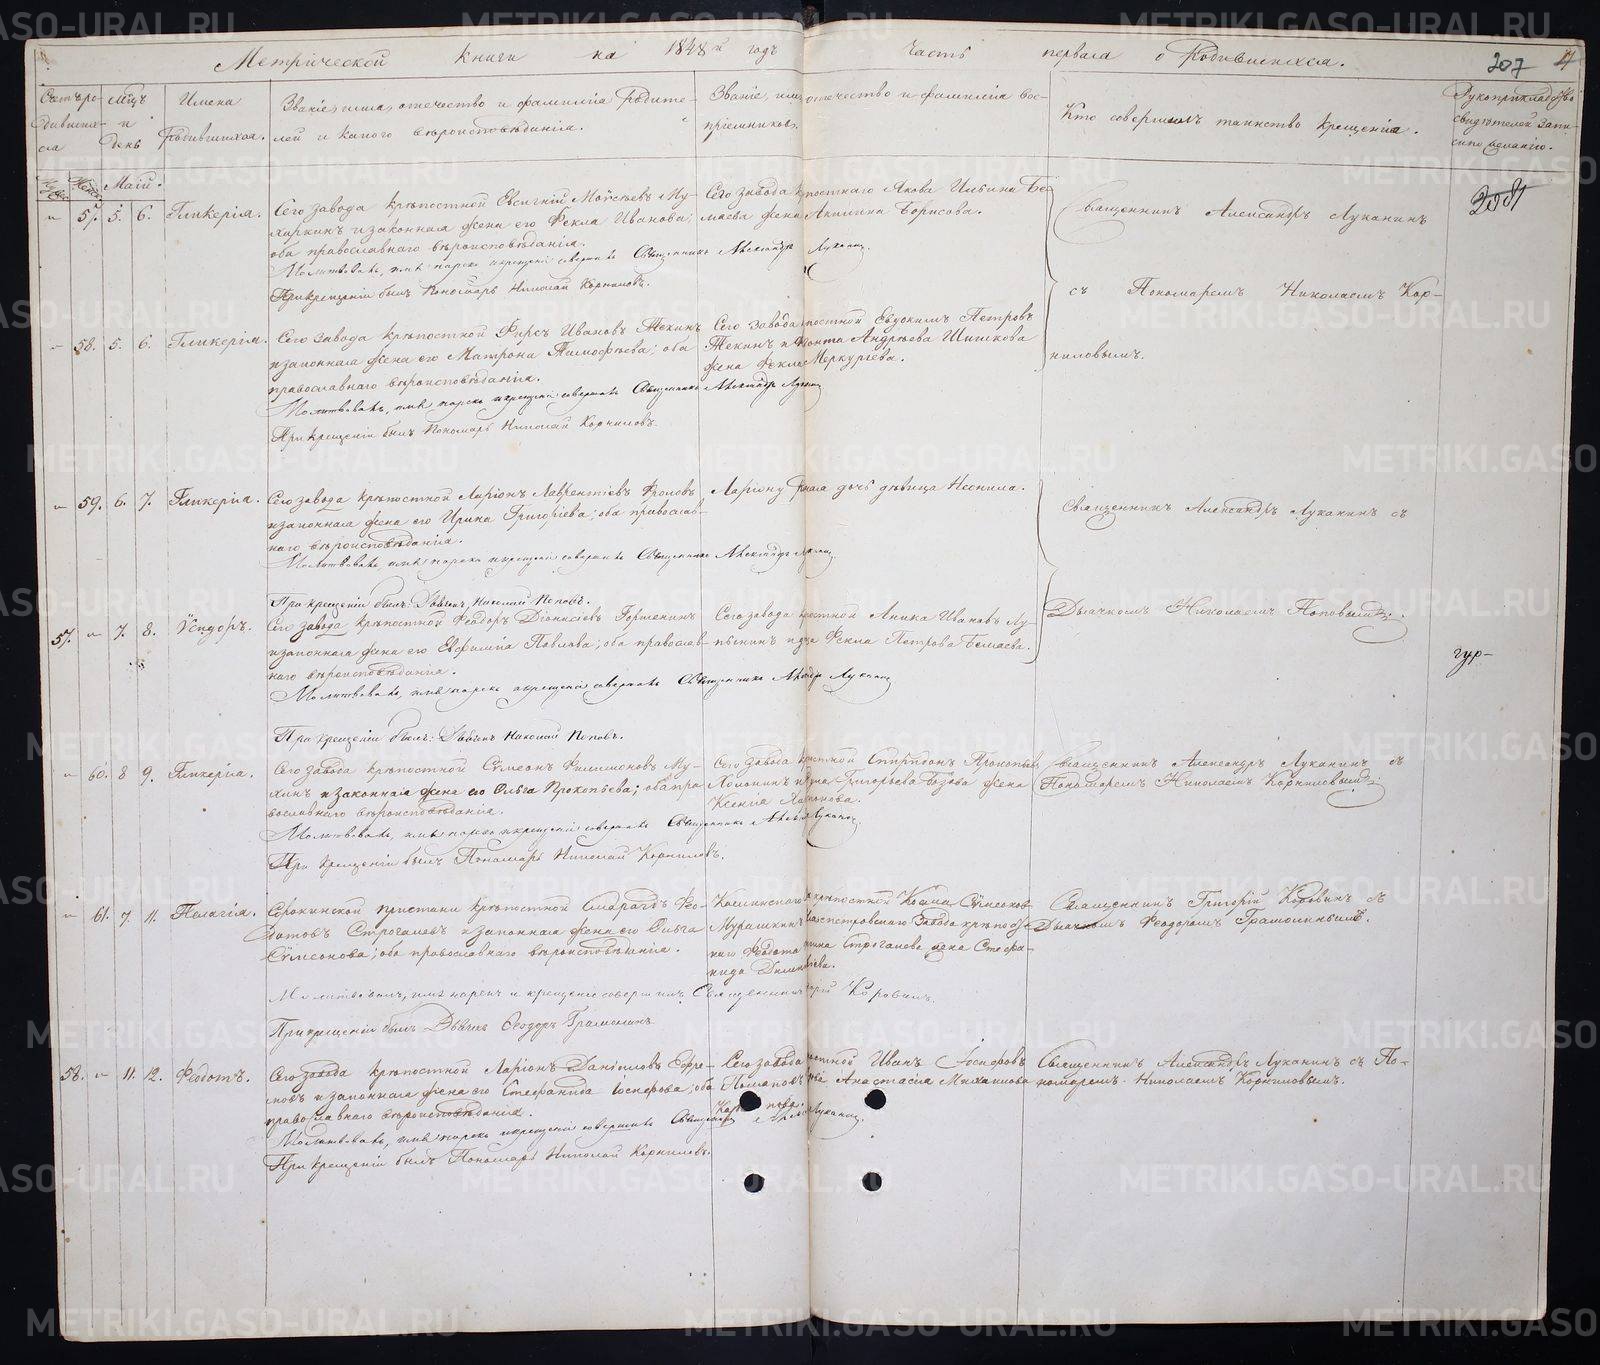 Метрической книги на 1848й годъ часть первая о Родившихся.
207
Счетъ ро-
дивших-
ся
Мѣсяцъ
и
день
Имена
Родившихся.
Званіе, имя, отечество и фамилія Родите-
лей и какого вѣроисповѣданія.
Званіе, имя, отечество и фамилія Вос-
пріемниковъ.
Кто совершалъ таинство крещенія.
Рукоприкладство
свидѣтелей запи-
си по желанію.
Маій.
„ 57. 5. 6. Гликерія.
Сего завода крѣпостной Евсигній Моѵсеевъ
и законная жена его Фекла Иванова;
оба православнаго вѣроисповѣданія.
Молитвовалъ, имя нарекъ и крещеніе совершалъ Священникъ Александръ Луканин
При крещеніи былъ Пономарь Николай Корниловъ.
Сего завода крепостнаго Якова Ильина Бе-
лаева жена Акилина Борисова.
Священникъ Александръ Луканинъ
съ Пономаремъ Николаемъ Кор-
ниловымъ.
„ 58. 5. 6. Гликерія.
Сего завода крѣпостной Фирсъ Ивановъ Текинъ
и законная жена его Матрона Тимофѣева; оба
православнаго вѣроисповѣданія.
Молитвовалъ, имя нарекъ и крещеніе совершалъ Священникъ Александръ Лукани
При крещеніи былъ Пономарь Николай Корниловъ.
Сего завода постной Евдокимъ Петровъ
Текинъ и Андрѣева Шишкова
жена Фекла Меркурьева.
„ 59. 6. 7. Гликерія.
Сего завода крѣпостной Ларіонъ Лаврентіевъ Фроловъ
и законная жена его Ирина Григоріева; оба православ-
наго вѣроисповѣданія.
Молитвовалъ, имя нарекъ и крещеніе совершалъ Священникъ Александръ
При крещеніи былъ: Дьячекъ Николай Поповъ.
Ларіону дочь дѣвица Неонила.
Священникъ Александръ Луканинъ съ
Дьячкомъ Николаемъ Поповымъ.
57. „ 7. 8. Ѵсидоръ.
Сего завода крѣпостной Ѳеодоръ Діонисіевъ Горшенинъ
и законная жена его Евфимія Павлова; оба православ-
наго вѣроисповѣданія.
Молитвовалъ, имя нарекъ и крещеніе совершалъ Священникъ Луканин
При крещеніи былъ: Дьячекъ Николай Поповъ.
Сего завода постной Аника Ивановъ Лу-
Фекла Петрова Беляева.
„ 60. 8 9. Гликерія.
Сего завода крѣпостной Сѵмеонъ Филимоновъ Му-
хинъ и законная жена его Ольга Прокопьева; оба пра-
вославнаго вѣроисповѣданія.
Молитвовалъ, имя нарекъ и крещеніе совершалъ Священникъ Луканин
При крещеніи былъ Пономарь Николай Корниловъ.
Сего завода постной Спиридонъ Прокопьев
Григорьева жена
Ксенія
Священникъ Александръ Луканинъ съ
Пономаремъ Николаемъ Корниловымъ.
„ 61. 7. 11. Пелагія.
Сорокинской пристани крѣпостной Смарагдъ Ѳео-
датовъ Строгалевъ и законная жена его Ольга
Сѵмеонова; оба православнаго вѣроисповѣданія.
Молитвовалъ, имя нарекъ и крещеніе совершалъ Священникъ Коровинъ.
При крещеніи былъ Дьячекъ Ѳеодоръ Грамолинъ
крѣпостной Косма Сѵмеонов
Мурашкинъ завода крѣпост-
наго Ѳеодота Строгалева жена Стефа-
нида
Священникъ Григорій Коровинъ съ
Дьячкомъ Ѳеодоромъ Грамолинымъ.
58. „ 11. 12. Ѳеодотъ.
Сего завода крѣпостной Ларіонъ Даніиловъ Ефре-
мовъ и законная жена его Стефанида Іосифова; оба
православнаго вѣроисповѣданія.
Молитвовалъ, имя нарекъ и крещеніе совершалъ Священникъ Луканин
При крещеніи былъ Пономарь Николай Корниловъ.
Сего завода постной Иванъ Іосифовъ
Анастасія Михаилова
Священникъ Александръ Луканинъ съ По-
номаремъ Николаемъ Корниловымъ.
гур-
METRIKI.GASO-URAL.RU